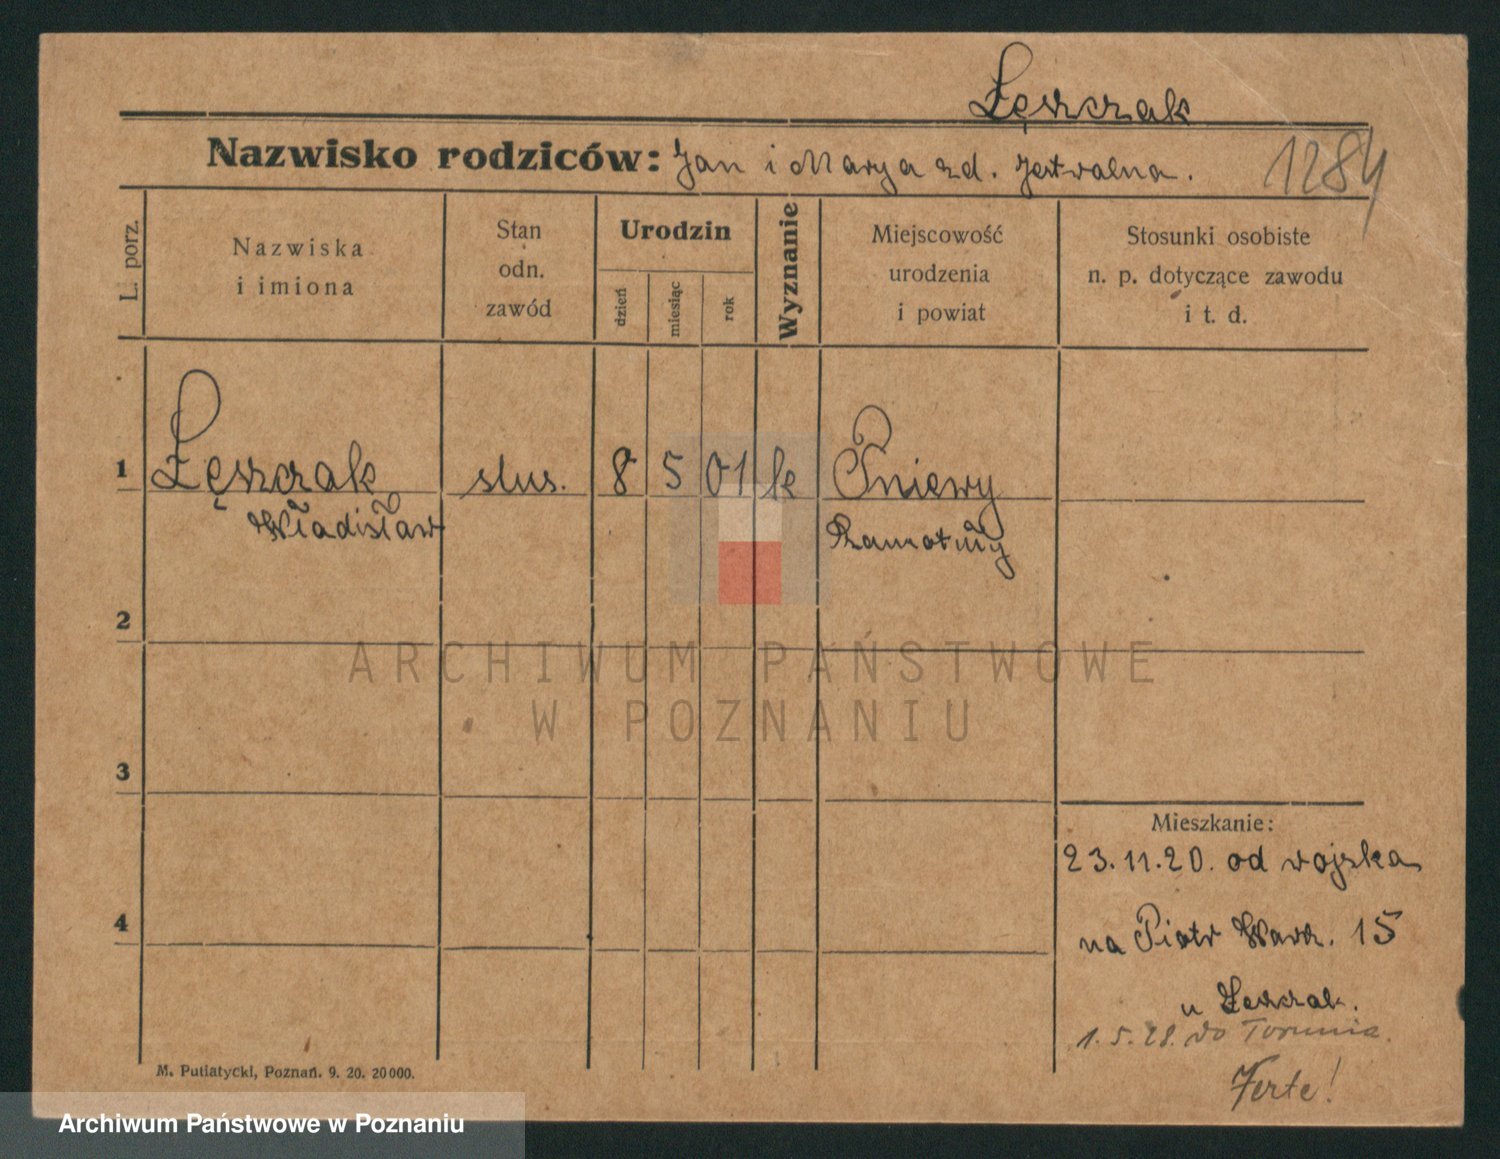 Łęszczak
Nazwisko rodziców: Jan i Marya zd.
1284
L. porz.
Nazwiska
i imiona
Stan
odn.
zawód
Urodzin
dzień
miesiąc
rok
Wyznanie
Miejscowość
urodzenia
i powiat
Stosunki osobiste
n. p. dotyczące zawodu
i t. d.
1
Łęszczak
Władisław
slus.
8
5
01
k
Pniewy
2
3
4
Mieszkanie:
23.11.20. od wojska
na Piotr Wawr. 15
u Łeszczak.
1.5.28. do Torunia.
M. Putiatycki, Poznań. 9. 20. 20000.
ARCHIWUM PAŃSTWOWE
W POZNANIU
Archiwum Państwowe w Poznaniu